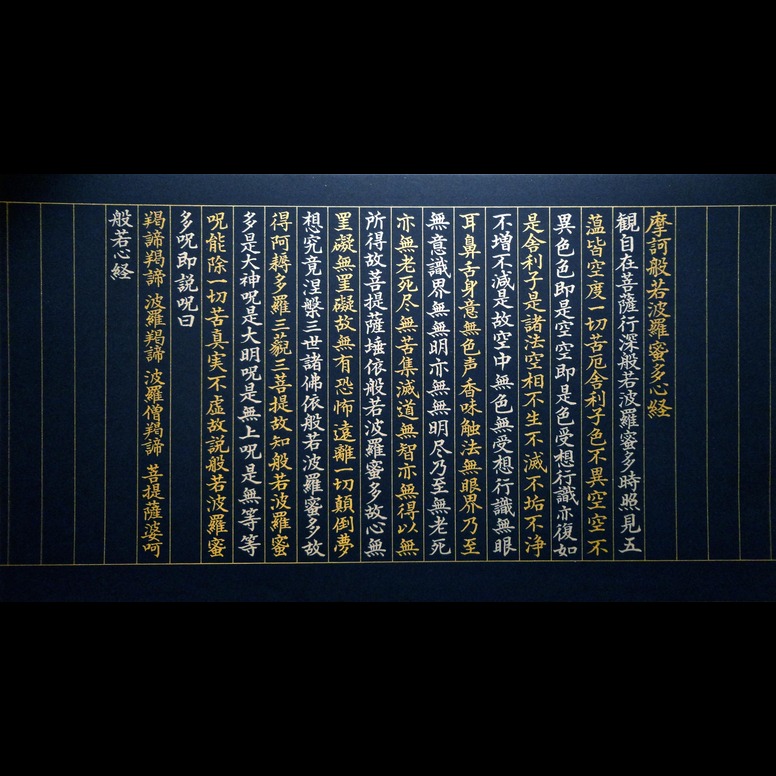 摩訶般若波羅蜜多心経
観自在菩薩行深般若波羅蜜多時照見五
薀皆空度一切苦厄舎利子色不異空空不
異色色即是空空即是色受想行識亦復如
是舎利子是諸法空相不生不滅不垢不浄
不増不減是故空中無色無受想行識無眼
耳鼻舌身意無色声香味触法無眼界乃至
無意識界無無明亦無無明尽乃至無老死
亦無老死尽無苦集滅道無智亦無得以無
所得故菩提薩埵依般若波羅蜜多故心無
罣礙無罣礙故無有恐怖遠離一切顛倒夢
想究竟涅槃三世諸佛依般若波羅蜜多故
得阿耨多羅三藐三菩提故知般若波羅蜜
多是大神呪是大明呪是無上呪是無等等
呪能除一切苦真実不虚故説般若波羅蜜
多呪即説呪曰
羯諦羯諦 波羅羯諦 波羅僧羯諦 菩提薩婆呵
般若心経